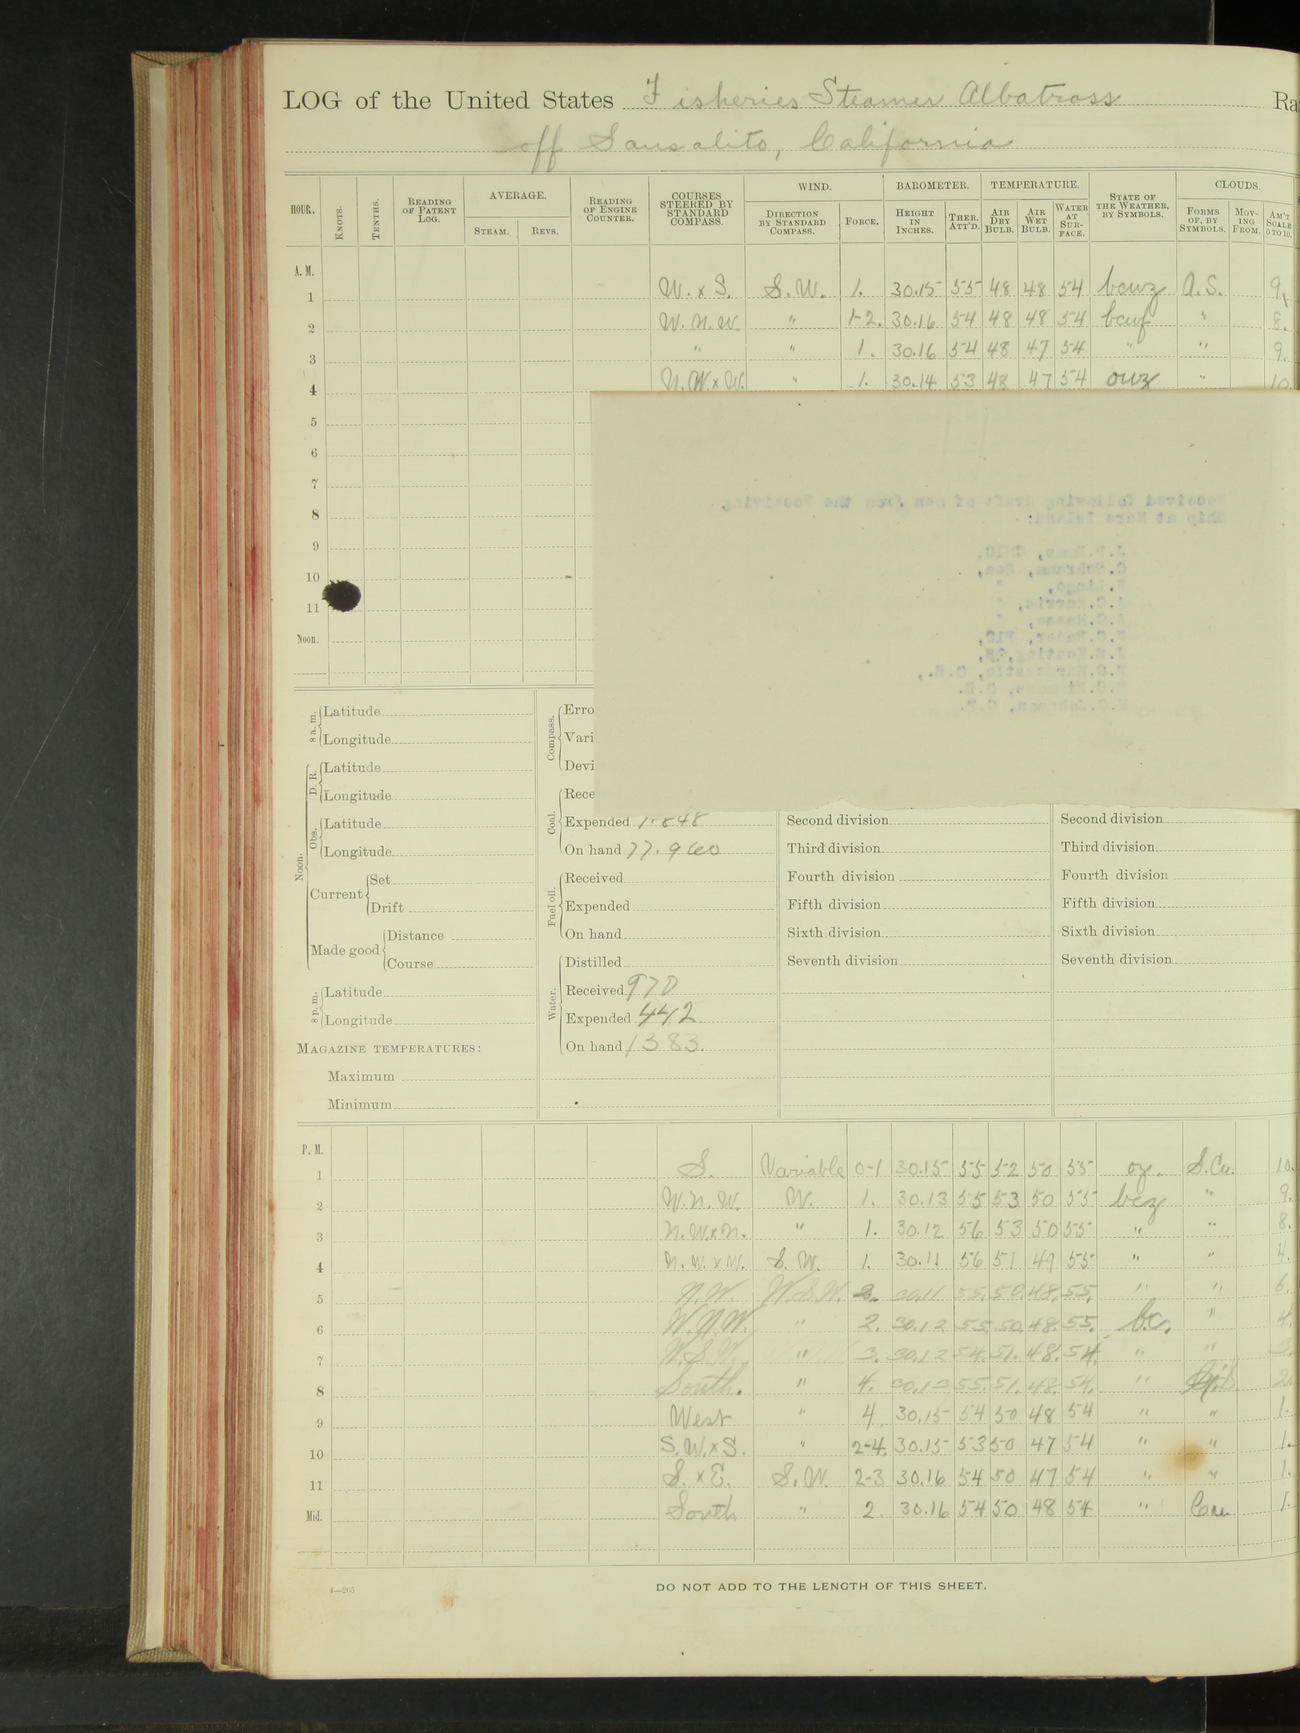 LOG of the United States Fisheries Steamer Albatross Ra
off Sausalito, California
HOUR. KNOTS. TENTHS. READING OF PATENT LOG. AVERAGE. STEAM. REVS. READING OF ENGINE COUNTER. COURSES STEERED BY STANDARD COMPASS. WIND. DIRECTION BY STANDARD COMPASS. FORCE. BAROMETER. HEIGHT IN INCHES. THER. ATT'D. TEMPERATURE. AIR DRY BULB. AIR WET BULB. WATER AT SURFACE. STATE OF THE WEATHER, BY SYMBOLS. CLOUDS. FORMS OF, BY SYMBOLS. MOVING FROM. AM'T SCALE 0 TO 10.
A. M.
1 W. x S. S. W. 1. 30.15 55 48 48 54 bcwz A. S. 9
2 W. N. W. " 1-2. 30.16 54 48 48 54 bcwf " 8.
3 " " 1. 30.16 54 48 47 54 " " 9.
4 N. W. x W. " 1. 30.14 53 48 47 54 owz " 10.
5
6
7
8
9
10
11
Noon.
Received following draft of men from the Receiving
Ship at Mare Island:
8 a. m. Latitude
Longitude
Noon. D. R. Latitude
Longitude
Obs. Latitude
Longitude
Current Set
Drift
Made good Distance
Course
8 p. m. Latitude
Longitude
MAGAZINE TEMPERATURES:
Maximum
Minimum
Compass. Erro
Vari
Devi
Coal. Rece
Expended 1.848
On hand 77.960
Fuel oil. Received
Expended
On hand
Water. Distilled
Received 970
Expended 442
On hand 1383.
Second division
Third division
Fourth division
Fifth division
Sixth division
Seventh division
Second division
Third division
Fourth division
Fifth division
Sixth division
Seventh division
P. M.
1 S. Variable 0-1 30.15 55 52 50 55 oz. S. Cu. 10.
2 W. N. W. W. 1. 30.13 55 53 50 55 bcz " 9.
3 N. W. x N. " 1. 30.12 56 53 50 55 " " 8.
4 N. W. x W. S. W. 1. 30.11 56 51 47 55 " " 4.
5 N. W. W S W. 2. 30.11 55. 50. 48. 55. " " 6.
6 W. N. W. " 2. 30.12 55 50 48. 55. bc. " 4.
7 W. S. W. " 3. 30.12 54. 51. 48. 54. " "
8 South. " 4. 30.13 55. 51. 48. 54. " 2.
9 West " 4 30.15 54 50 48 54 " " 1.
10 S. W. x S. " 2-4. 30.15 53 50 47 54 " " 1.
11 S. x E. S. W. 2-3 30.16 54 50 47 54 " " 1.
Mid. South " 2. 30.16 54 50 48 54 " Cu. 1.
4—265
DO NOT ADD TO THE LENGTH OF THIS SHEET.